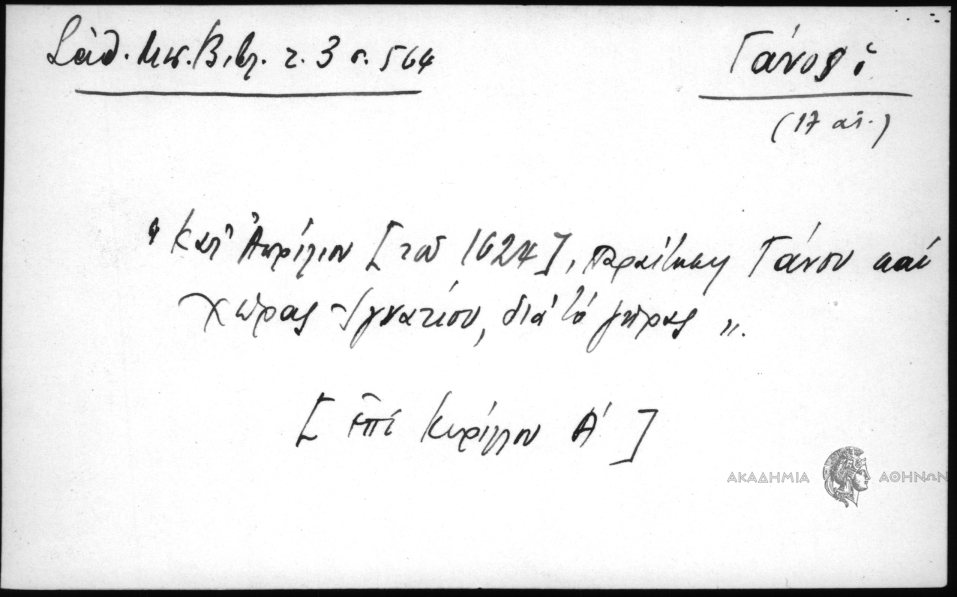 Σάθ. Μεσ. Βιβλ. τ. 3 σ. 564
Γάνος ἡ
(17 αἰ.)
“Κατ' Ἀπρίλιον [τοῦ 1624], παραίτησις Γάνου καὶ
χώρας Ἰγνατίου, διὰ τὸ γῆρας”.
[ἐπὶ Κυρίλλου Α']
ΑΚΑΔΗΜΙΑ ΑΘΗΝΩΝ